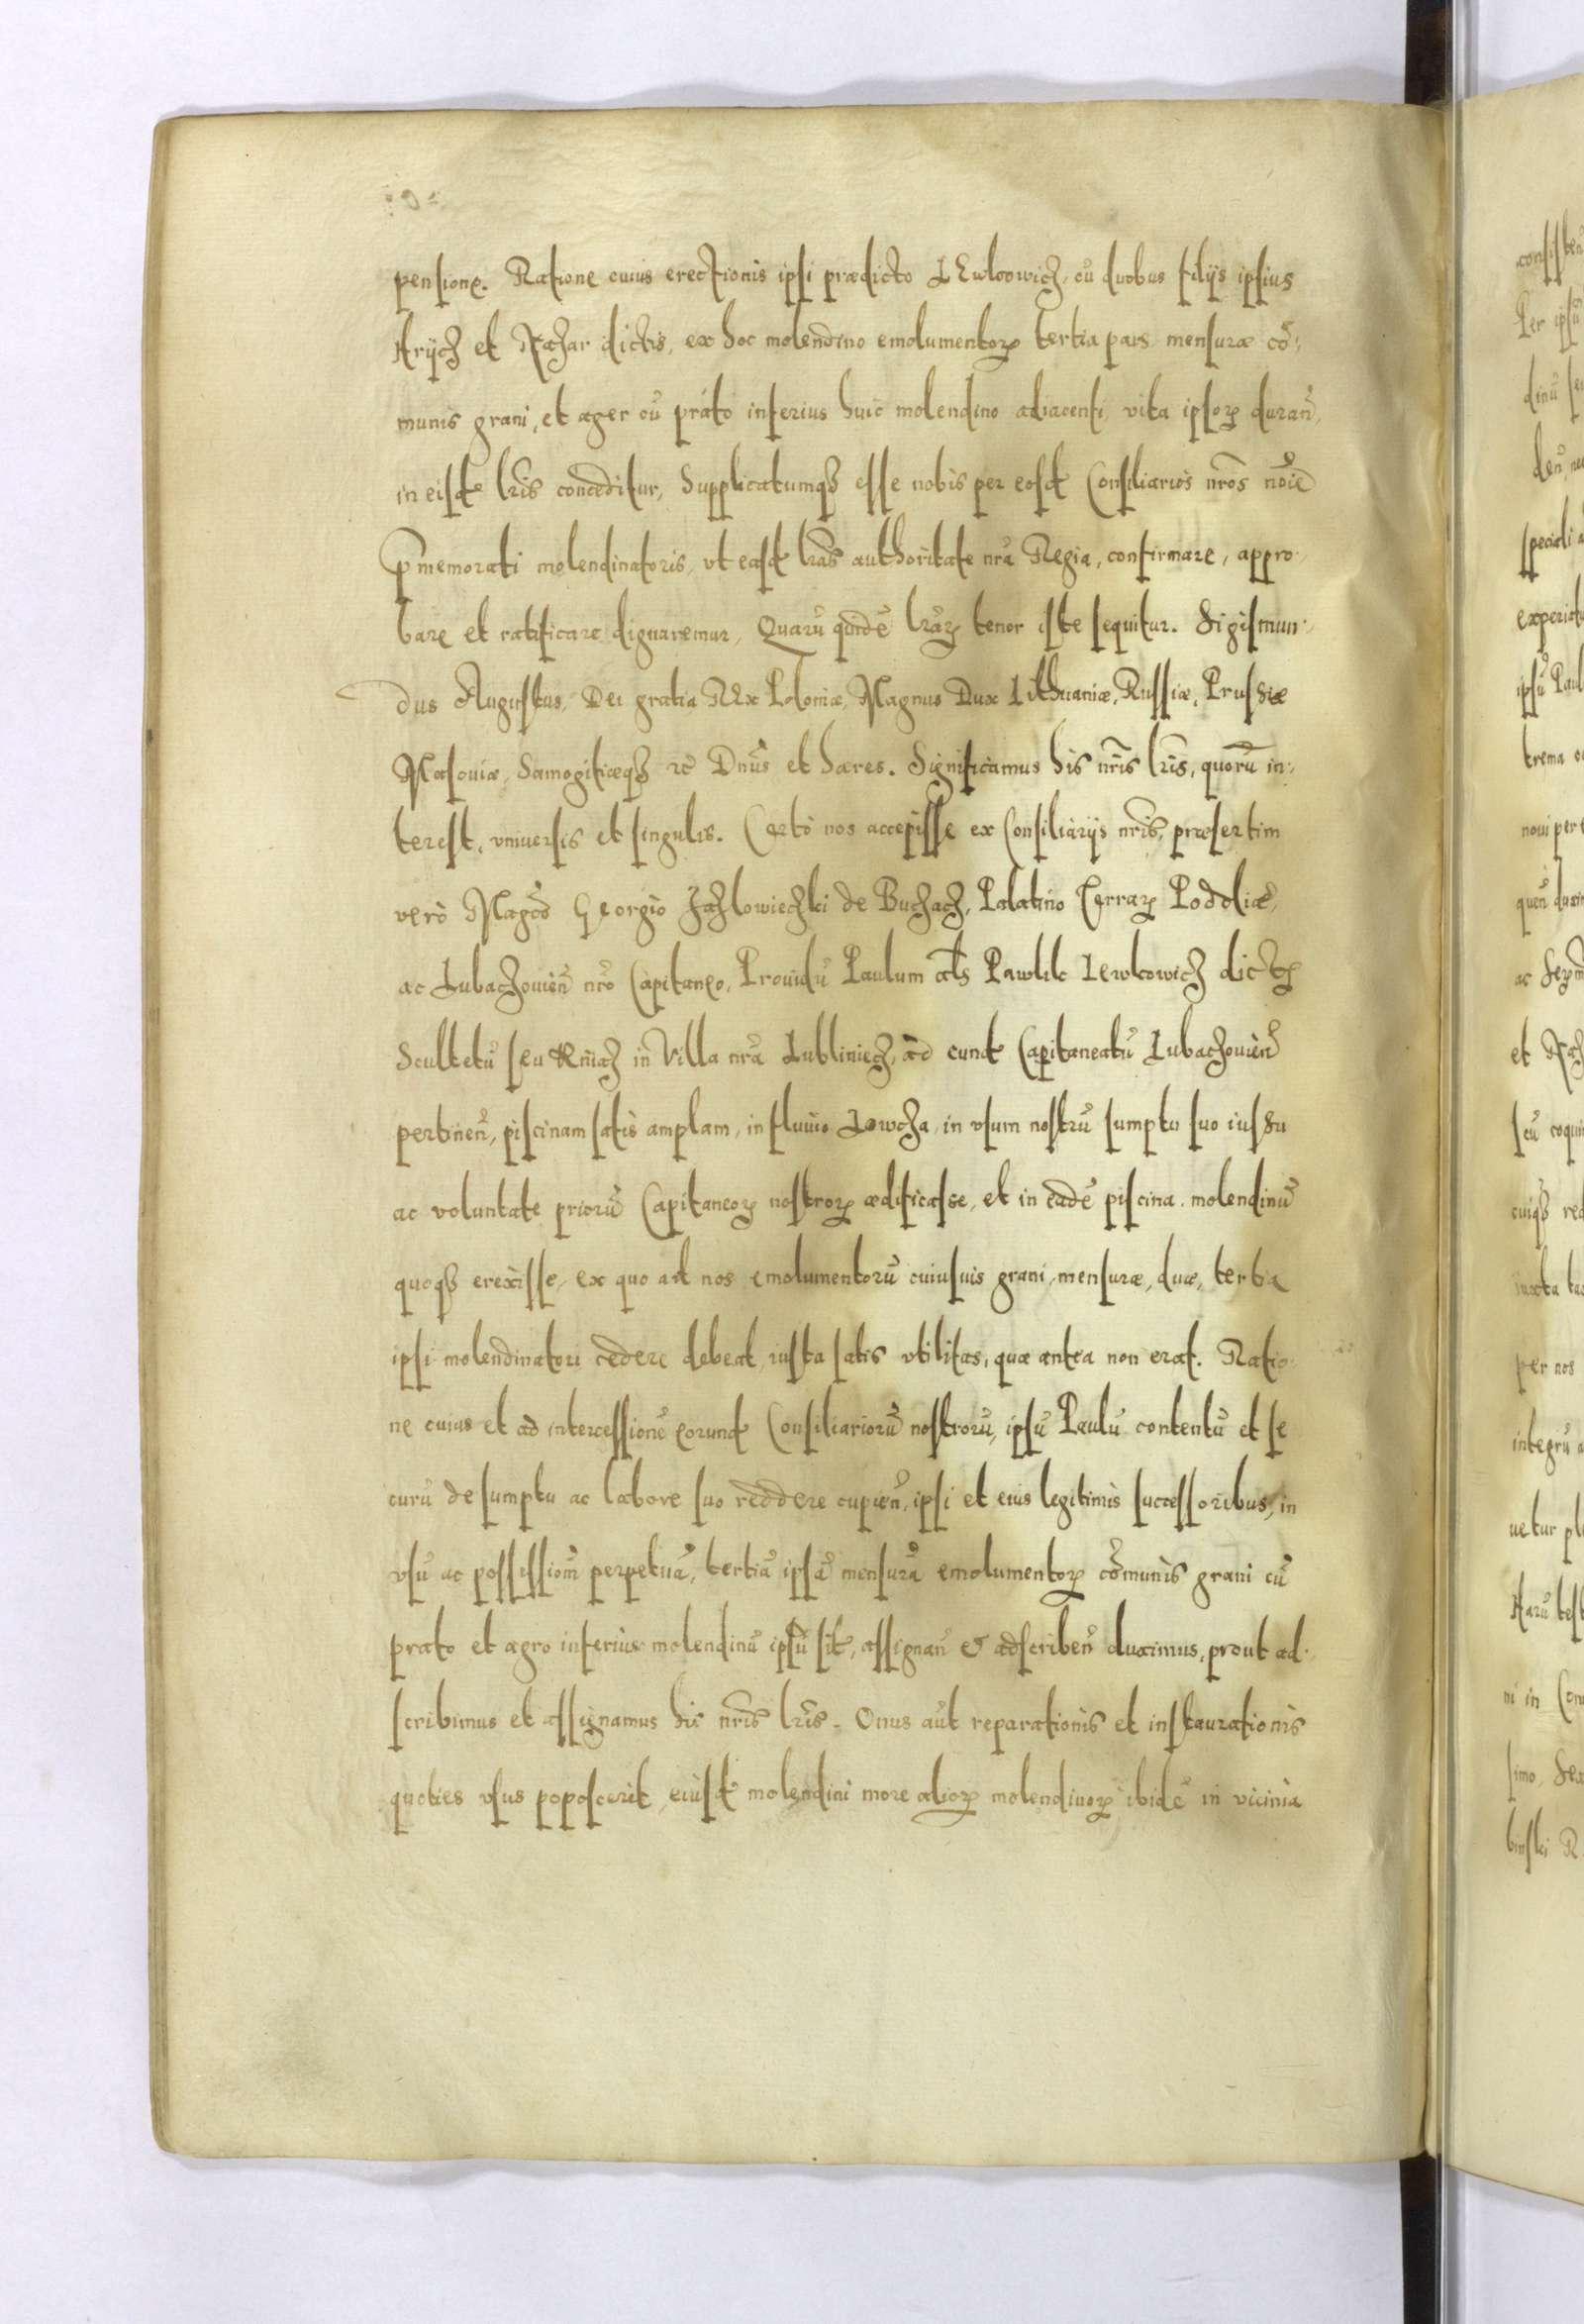 pensione. Ratione cuius erectionis ipsi prædicto LEwkowicz, cū duobus filijs ipsius
Hrijcz et Nazar dictis, ex hoc molendino emolumentorꝝ tertia pars mensuræ cō:
munis grani, et ager cū prato inferius huic molendino adiacenti, vita ipsorꝝ durañ,
in eisd lr̃is conceditur, Supplicatumqȝ esse nobis per eosd Consiliarios nr̃os noi͠e
p̃memorati molendinatoris, vt easd lr̃as authoritate nr̃a Regia, confirmare, appro:
bare et ratificare dignaremur, Quarū quidē lr̃arꝝ tenor iste sequitur. Sigismun:
dus Augustus, Dei gratia REx Poloniæ, Magnus Dux Lithuaniæ, Russiæ, Prussiæ
Masouiæ, Samogitiæqȝ ꝛc̃ Dn̄us et hæres. Significamus his nr̃is lr̃is, quorū in:
terest, vniuersis et singulis. Certo nos accepisse ex Consiliarijs nr̃is, præsertim
vero Magco Georgio Jazlowieczki de Buczacz, Palatino Terrarꝝ Podoliæ,
ac Lubaczouieñ nr̃o Capitaneo, Prouidū Paulum als Pawlik Lewkowicz dictꝝ
Scultetū seu Kniaz in Villa nr̃a Lubliniecz, ad eund Capitaneatū Lubaczouieñ
pertineñ, piscinam satis amplam, in fluuio Lowcza, in vsum nostrū sumptu suo iussu
ac voluntate priorū Capitaneorꝝ nostrorꝝ ædificasse, et in eadē piscina molendinū
quoqȝ erexisse, ex quo ad nos emolumentorū cuiusuis grani, mensuræ, duæ, tertia
ipsi molendinatori cedere debeat, iusta satis vtilitas, quæ antea non erat. Ratio:
ne cuius et ad intercessionē eorund Consiliariorū nostrorū, ipsū Paulū contentū et se
curū de sumptu ac labore suo reddere cupieñ, ipsi et eius legitimis successoribus, in
vsū ac possessionē perpetuā, tertiā ipsā mensurā emolumentorꝝ cōmunis grani cū
prato et agro inferius molendinū ipsū sit, assignañ & adscribeñ duximus, prout ad:
scribimus et assignamus his nr̃is lr̃is. Onus aūt reparationis et instaurationis
quoties vsus poposcerit, eiusd molendini more aliorꝝ molendinorꝝ ibidē in vicinia